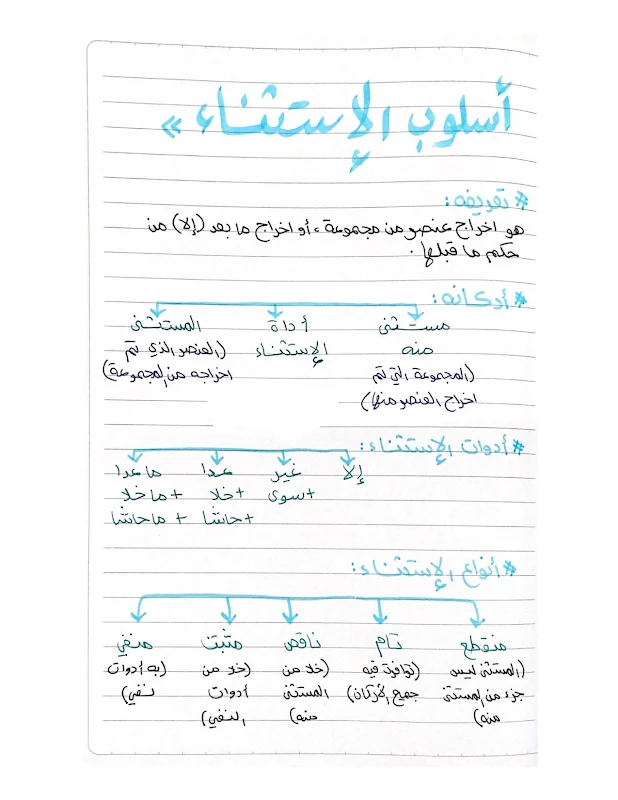 أسلوب الإستثناء »
* تعريفه:
هو اخراج عنصر من مجموعة ، أو اخراج ما بعد (إلا) من
حكم ما قبلها .
* أركانه:
مستثنى أداة المستثنى
منه الإستثناء (العنصر الذي تم
(المجموعة التي تم اخراجه من المجموعة)
اخراج العنصر منها)
* أدوات الإستثناء:
إلا غير عدا ماعدا
+سوى +خلا +ماخلا
+حاشا + ماحاشا
* أنواع الإستثناء:
منقطع تام ناقص مثبت منفي
(المستثنى ليس (توافرت فيه (خلا من (خلا من (به أدوات
جزء من المستثنى جميع الأركان) المستثنى أدوات نفي)
منه) منه) النفي)